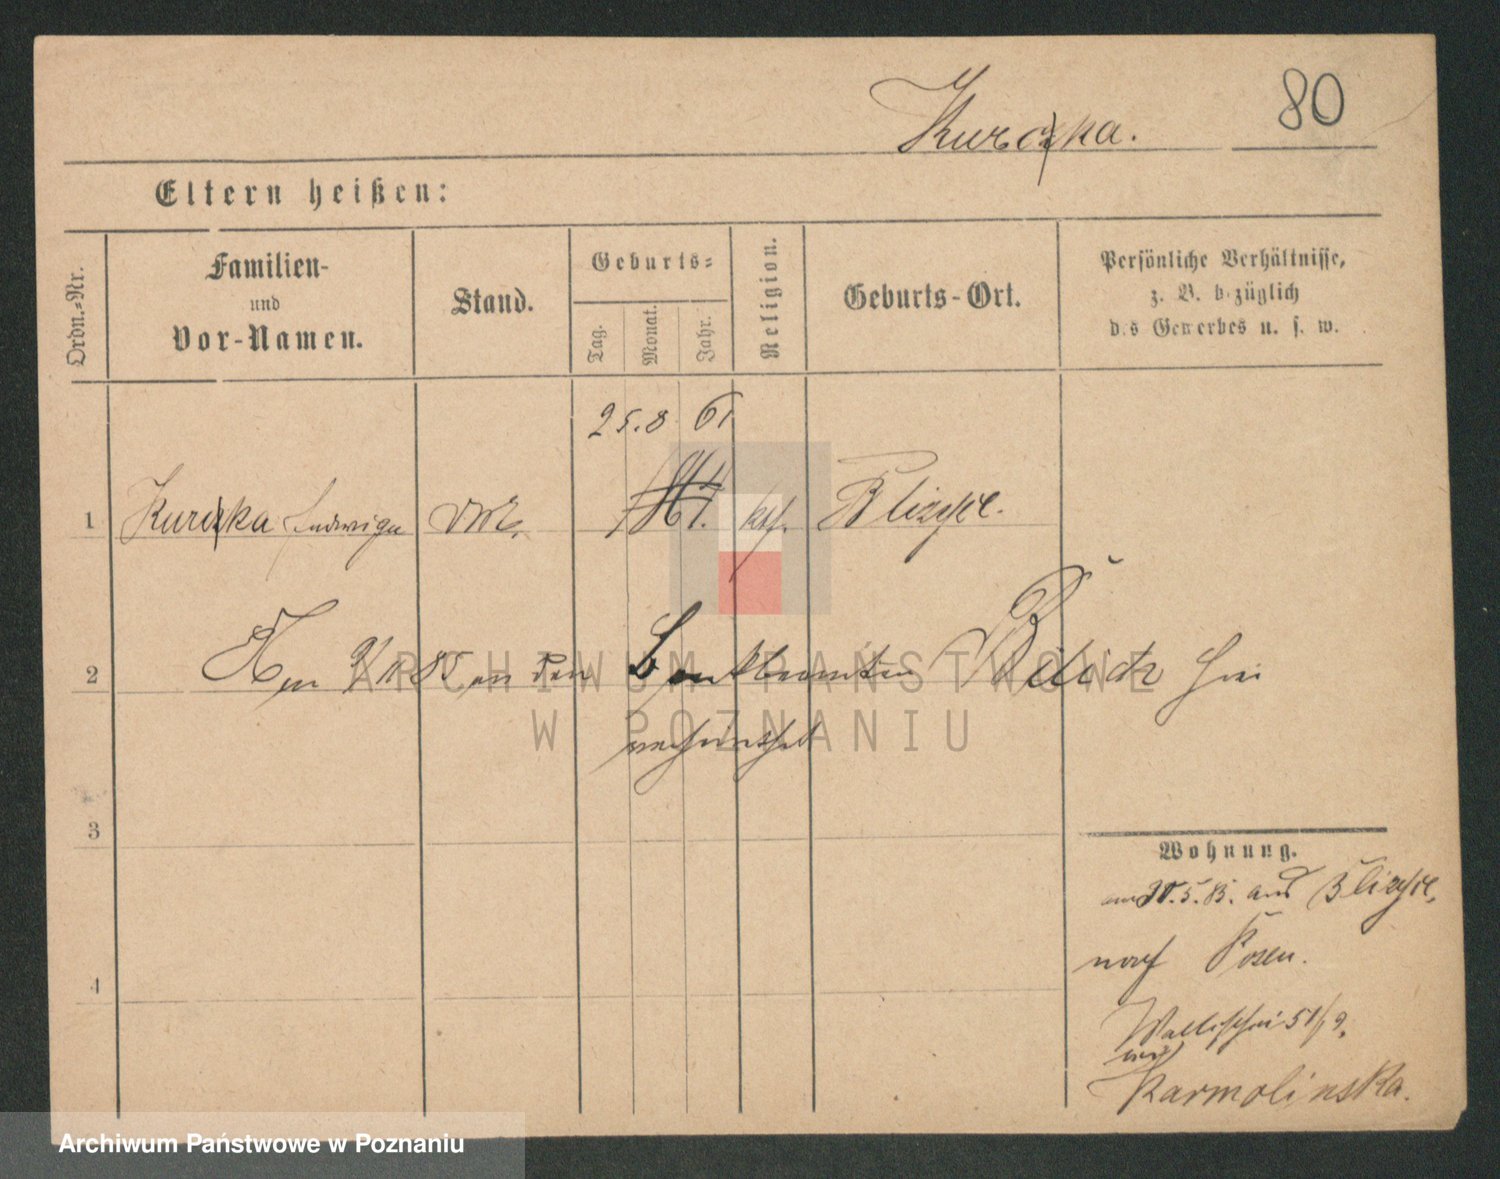 Kurczka. 80
Eltern heißen:
Ordn.-Nr.
Familien-
und
Vor-Namen.
Stand.
Geburts-
Tag.
Monat.
Jahr.
Religion.
Geburts-Ort.
Persönliche Verhältnisse,
z. B. bezüglich
des Gewerbes u. s. w.
25. 8 61
1 Kurczka Ludwiga kth. Blizyce.
2 Am 9/11 85 an den Bankbeamten hier
verheirathet
3
4
Wohnung.
am 5. 85. aus Blizyce,
nach Posen.
Wallischei 51/9.
Karmolinska.
ARCHIWUM PAŃSTWOWE
W POZNANIU
Archiwum Państwowe w Poznaniu